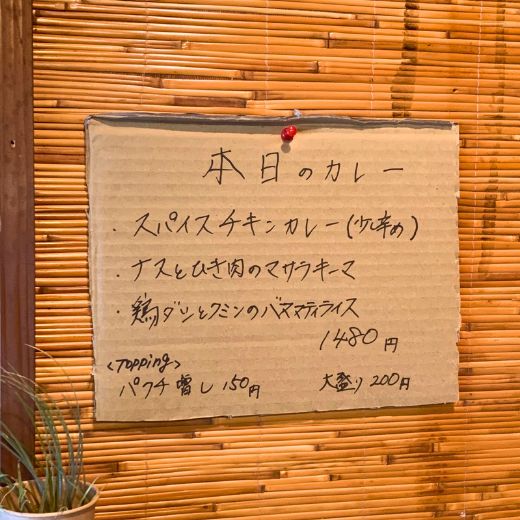 本日のカレー
・スパイスチキンカレー(少辛め)
・ナスとひき肉のマサラキーマ
・鶏ダシとクミンのバスマティライス
1480円
<Topping>
パクチー増し 150円 大盛り 200円